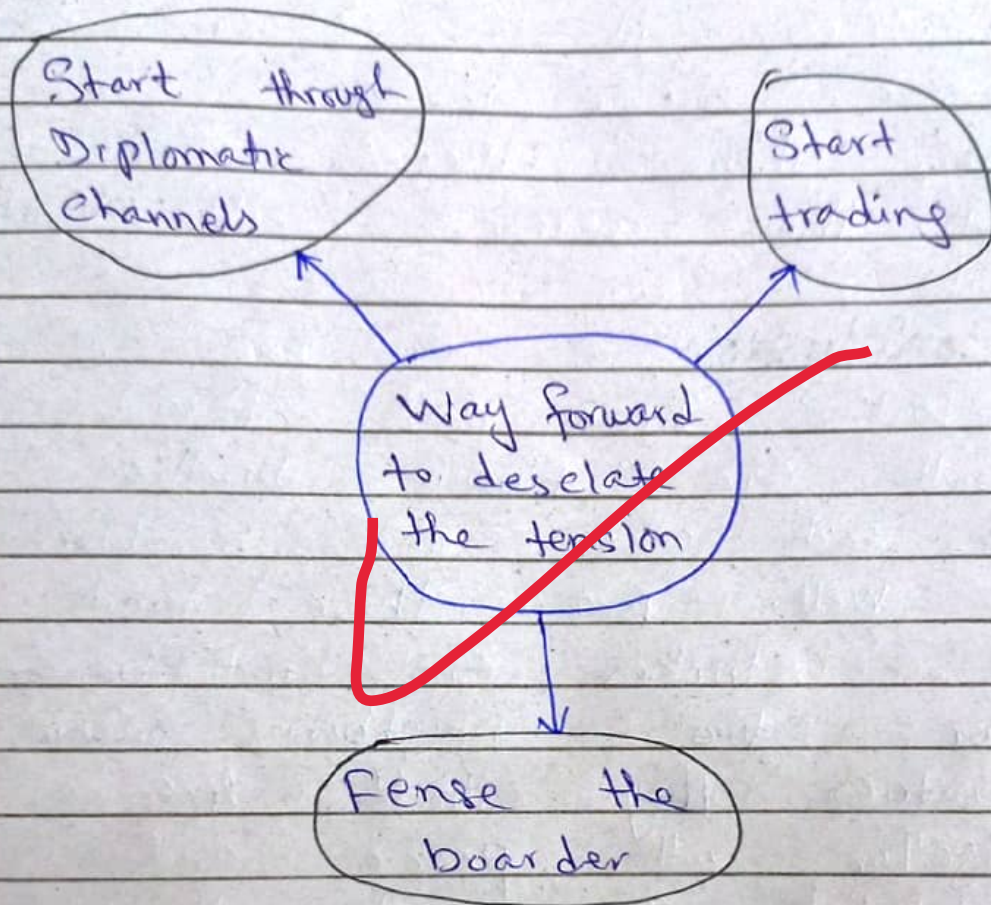 Start through
Diplomatic
Channels
Start
trading
Way forward
to deselate
the tension
Fense the
boarder